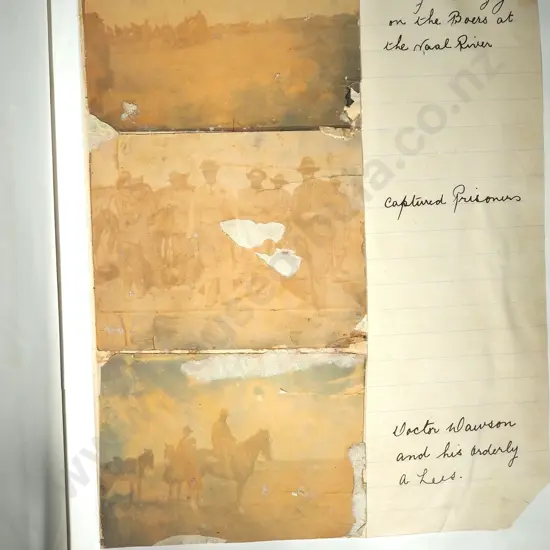 on the Boers at
the Vaal River
Captured Prisoners
Doctor Dawson
and his orderly
A Lees.